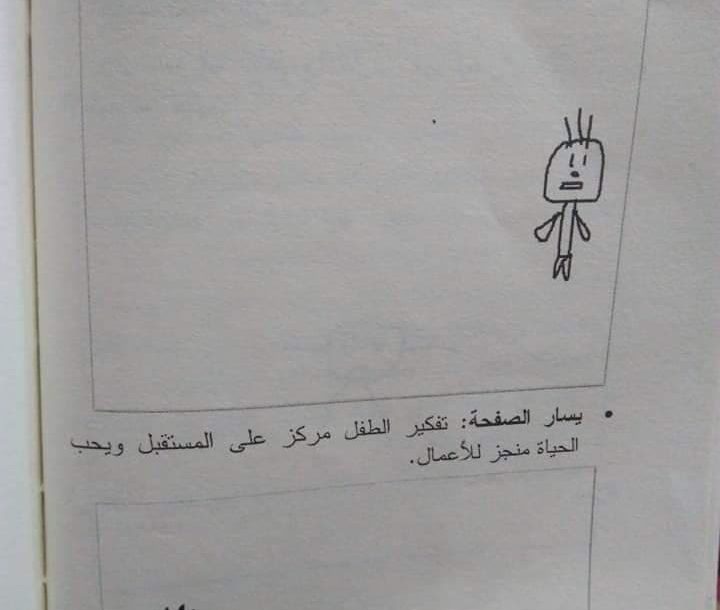 • يسار الصفحة: تفكير الطفل مركز على المستقبل ويحب
الحياة منجز للأعمال.